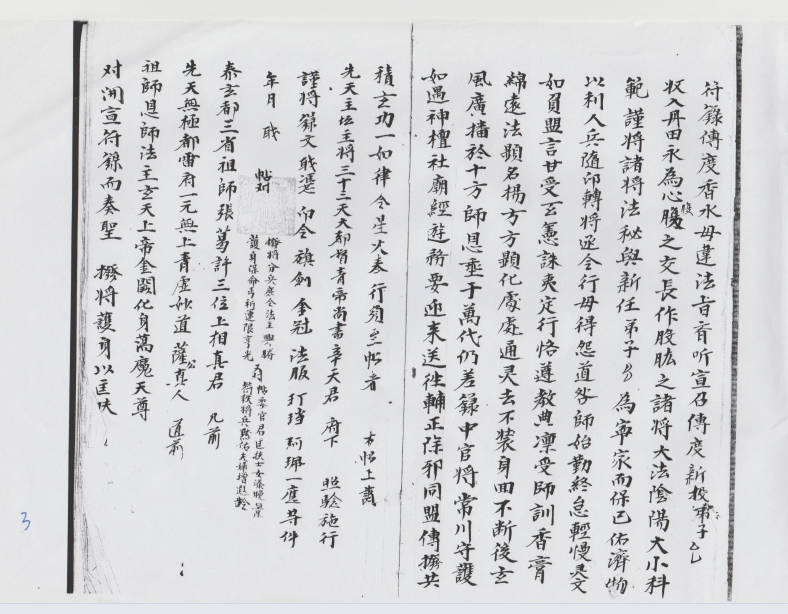 符籙傳度香水毋違法旨首听宣召傳度新投弟子么乙
收入丹田永為心腹之交長作股肱之諸將大法陰陽大小科
範謹將諸將法秘與新任弟子么為寧家而保已佑濟物
以利人兵隨印轉將逐令行毋得怨道咎師始勤終怠輕慢灵文
如負盟言甘受玄憲誅夷定行恪遵教典凜受師訓香膏
綿遠法顯名揚方方顯化處處通灵去不裝身回不断後玄
風廣播於十方師恩垂于萬代仍差籙中官將常川守護
如遇神壇社廟經遊務要迎来送徃輔正除邪同盟傳撥共
積玄功一如律令星火奉行須至帖者 右帖上賫
先天主坛主將三十三天天都督青帝尚書辛天君 府下 照驗施行
謹將籙文戝憑印令旗劍奎冠法服打珰一應等件
年月 戝 帖对
撥將分兵應令法主興勝
護身保命弓祈運限亨光
泰玄都三省祖師張葛許三位上相真君 几前
先天無極都雷府一元無上青虛妙道薩公真人 道前
祖師恩師法主玄天上帝金闕化身蕩魔天尊
对淵宣符籙而奏聖 撥將護身以匡
3